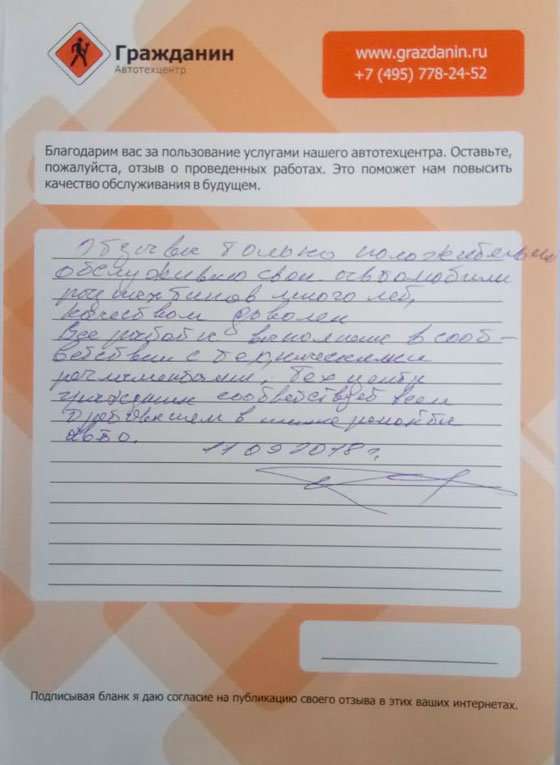 Гражданин
Автотехцентр
www.grazdanin.ru
+7 (495) 778-24-52
Благодарим вас за пользование услугами нашего автотехцентра. Оставьте,
пожалуйста, отзыв о проведенных работах. Это поможет нам повысить
качество обслуживания в будущем.
только
обслуживаю свои автомобили
много лет,
качеством доволен
Все работы в соот-
ветствии с техническими
регламентами. Тех центр
гражданин соответствует всем
требованиям в
авто.
11 09 2018 г.
Подписывая бланк я даю согласие на публикацию своего отзыва в этих ваших интернетах.